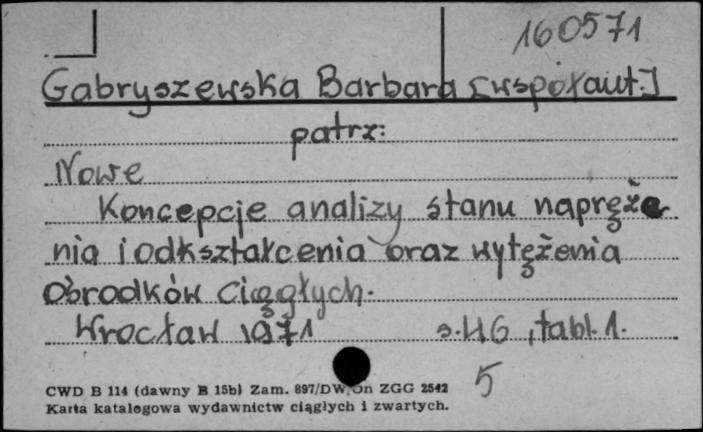 160571
Gabryszewska Barbara [współaut.]
patrz:
Nowe
Koncepcje analizy stanu napręże
nia i odkształcenia oraz wytężenia
Ośrodków ciągłych.
Wrocław 1971 s. 46, tabl. 1.
5
CWD B 114 (dawny B 15b) Zam. 897/DW/Dn ZGG 2542
Karta katalogowa wydawnictw ciągłych i zwartych.